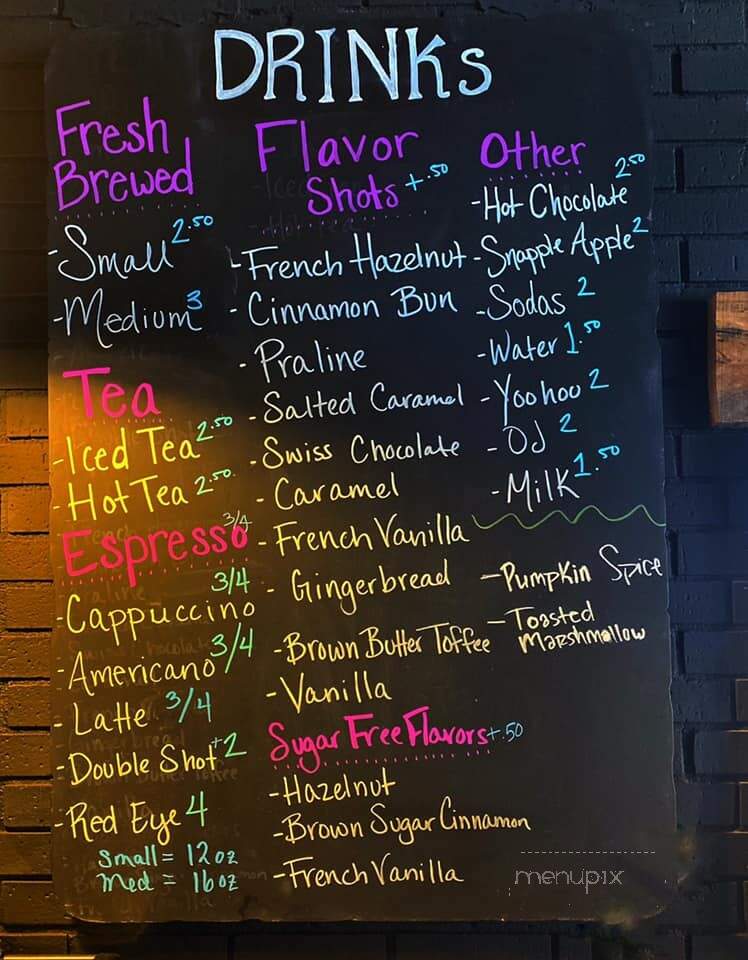 DRINKs
Fresh
Brewed
-Small 2.50
-Medium 3
Tea
-Iced Tea 2.50
-Hot Tea 2.50
Espresso 3/4
-Cappuccino 3/4
-Americano 3/4
-Latte 3/4
-Double Shot +2
-Red Eye 4
Small = 12oz
Med = 16oz
Flavor
Shots +.50
-French Hazelnut
-Cinnamon Bun
-Praline
-Salted Caramel
-Swiss Chocolate
-Caramel
-French Vanilla
-Gingerbread
-Brown Butter Toffee
-Vanilla
Sugar Free Flavors +.50
-Hazelnut
-Brown Sugar Cinnamon
-French Vanilla
Other
-Hot Chocolate 2.50
-Snapple Apple 2
-Sodas 2
-Water 1.50
-Yoohoo 2
-OJ 2
-Milk 1.50
-Pumpkin Spice
-Toasted
Marshmallow
menupix